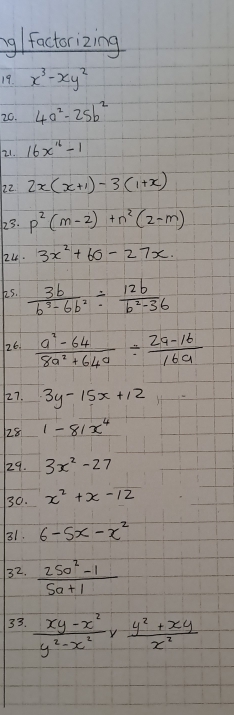 ng/Factorizing
19. x³ - xy²
20. 4a² - 25b²
21. 16x¹⁶ - 1
22 2x(x+1) - 3(1+x)
23. p²(m-2) + n²(2-m)
24. 3x² + 60 - 27x.
25. 3b/(b³-6b²) ÷ 12b/(b²-36)
26. (a²-64)/(8a²+64a) ÷ (2a-16)/(16a)
27. 3y - 15x + 12
28 1 - 81x⁴
29. 3x² - 27
30. x² + x - 12
31. 6 - 5x - x²
32. (25a²-1)/(5a+1)
33. (xy-x²)/(y²-x²) × (y²+xy)/x²